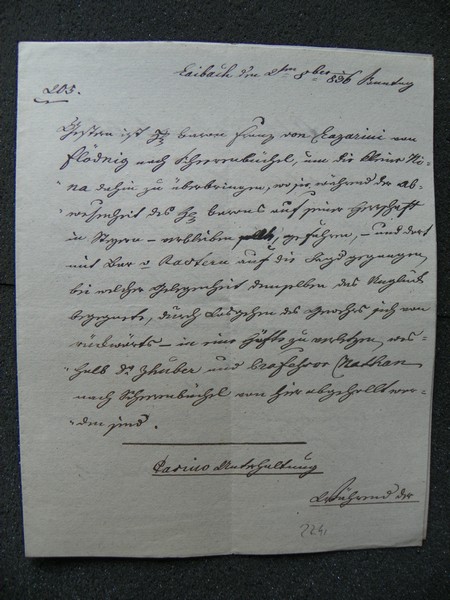 Laibach den 2ten 8ber 836 Sonntag
205.
Gestern ist H: Baron Franz von Lazarini von
Flödnig nach Scherenbüchel, um die kleine Ni-
na dahin zu überbringen, wo sie während der Ab-
wesenheit des H: Barons auf seiner Herrschaft
in Steyern – verbleiben, gefahren, – und dort
mit Bar v Rastern auf die Jagd gegangen,
bei welcher Gelegenheit demselben das Unglück
begegnete, durch Losgehen des Gewehrs sich von
rückwärts – in eine Hüfte zu verletzen, wes-
halb Dr Zhuber und Professor Nathan
nach Scherenbüchel von hier abgehollt wor-
den sind.
Casino Unterhaltung
Während der
224.